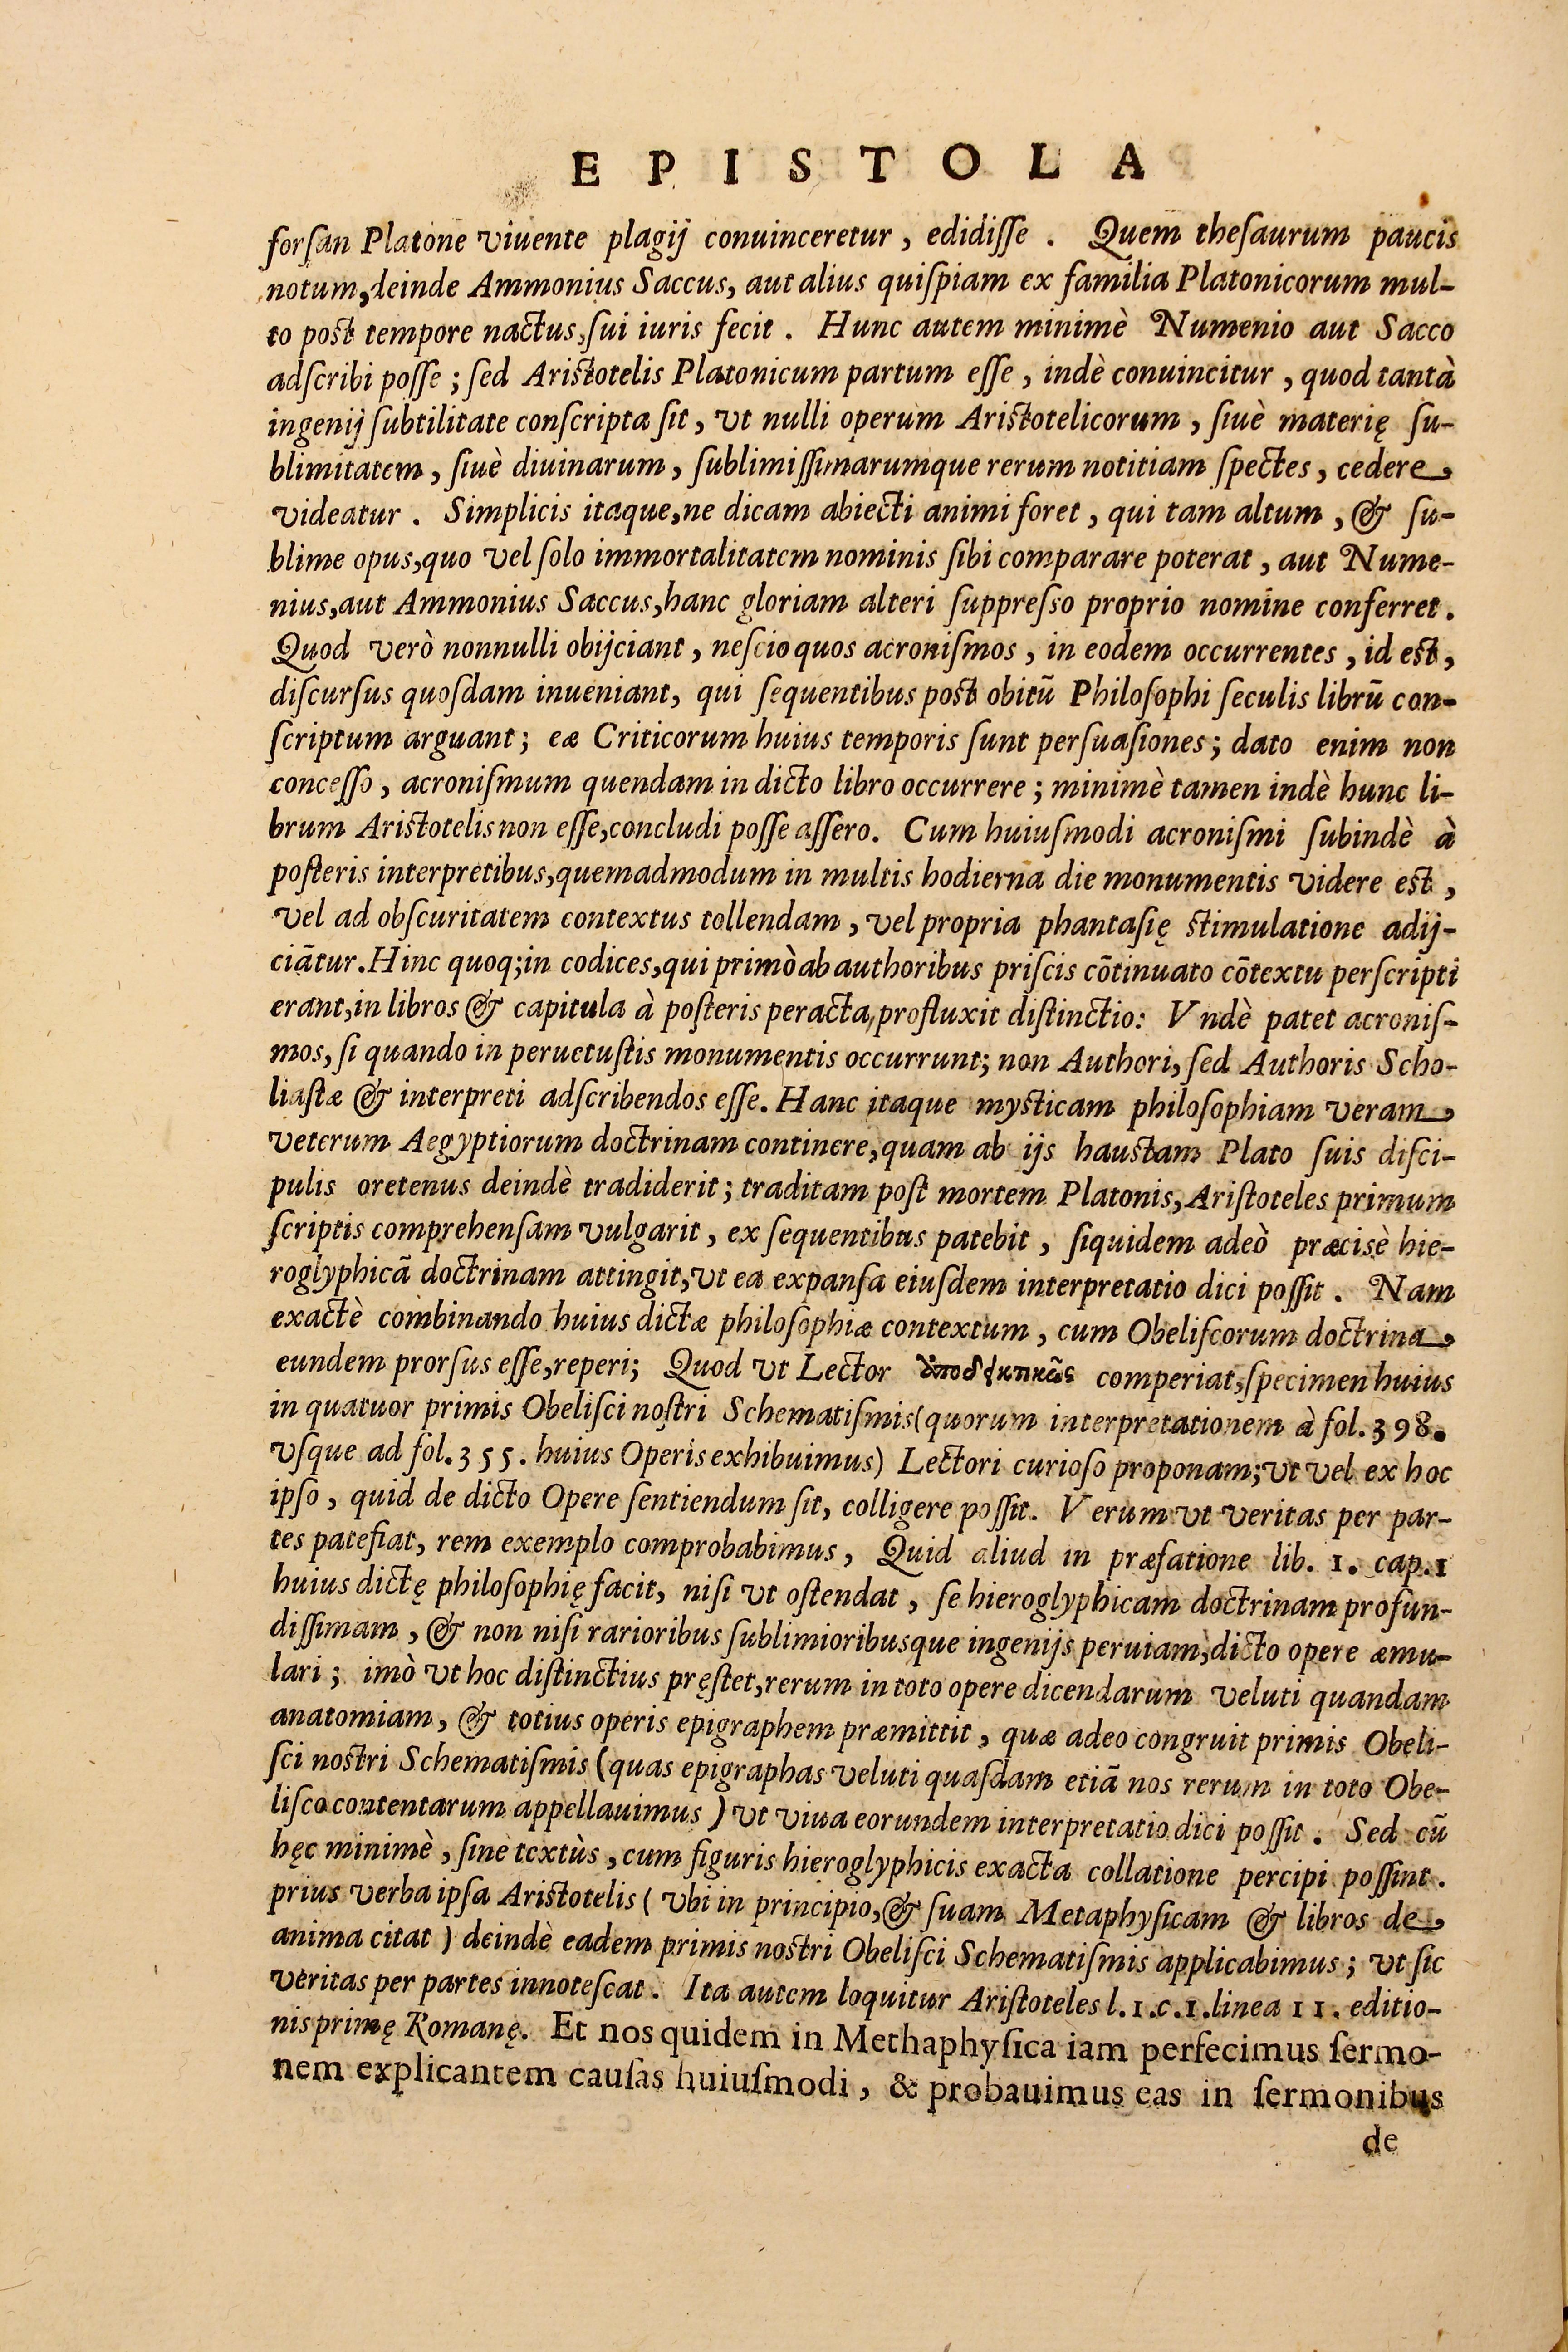 EPISTOLA
forſan Platone viuente plagij conuinceretur, edidiſſe. Quem theſaurum paucis
notum, deinde Ammonius Saccus, aut alius quiſpiam ex familia Platonicorum mul-
to poſt tempore nactus, ſui iuris fecit. Hunc autem minimè Numenio aut Sacco
adſcribi poſſe; ſed Ariſtotelis Platonicum partum eſſe, indè conuincitur, quod tantà
ingenij ſubtilitate conſcripta ſit, vt nulli operum Ariſtotelicorum, ſiuè materię ſu-
blimitatem, ſiuè diuinarum, ſublimiſſimarumque rerum notitiam ſpectes, cedere
videatur. Simplicis itaque, ne dicam abiecti animi foret, qui tam altum, & ſu-
blime opus, quo vel ſolo immortalitatem nominis ſibi comparare poterat, aut Nume-
nius, aut Ammonius Saccus, hanc gloriam alteri ſuppreſso proprio nomine conferret.
Quod verò nonnulli obijciant, neſcio quos acroniſmos, in eodem occurrentes, id eſt,
diſcurſus quoſdam inueniant, qui ſequentibus poſt obitū Philoſophi ſeculis librū con-
ſcriptum arguant; eæ Criticorum huius temporis ſunt perſuaſiones; dato enim non
conceſſo, acroniſmum quendam in dicto libro occurrere; minimè tamen indè hunc li-
brum Ariſtotelis non eſſe, concludi poſſe aſſero. Cum huiuſmodi acroniſmi ſubindè à
poſteris interpretibus, quemadmodum in multis hodierna die monumentis videre eſt,
vel ad obſcuritatem contextus tollendam, vel propria phantaſię ſtimulatione adij-
ciãtur. Hinc quoq; in codices, qui primò ab authoribus priſcis cõtinuato cõtextu perſcripti
erant, in libros & capitula à poſteris peracta, profluxit diſtinctio: Vndè patet acroniſ-
mos, ſi quando in peruetuſtis monumentis occurrunt; non Authori, ſed Authoris Scho-
liaſtæ & interpreti adſcribendos eſſe. Hanc itaque myſticam philoſophiam veram
veterum Aegyptiorum doctrinam continere, quam ab ijs hauſtam Plato ſuis diſci-
pulis oretenus deindè tradiderit; traditam poſt mortem Platonis, Ariſtoteles primum
ſcriptis comprehenſam vulgarit, ex ſequentibus patebit, ſiquidem adeò præcisè hie-
roglyphicã doctrinam attingit, vt ea expanſa eiuſdem interpretatio dici poſſit. Nam
exactè combinando huius dictæ philoſophiæ contextum, cum Obeliſcorum doctrina
eundem prorſus eſſe, reperi; Quod vt Lector comperiat, ſpecimen huius
in quatuor primis Obeliſci noſtri Schematiſmis (quorum interpretationem à fol. 398.
vſque ad fol. 355. huius Operis exhibuimus) Lectori curioſo proponam; vt vel ex hoc
ipſo, quid de dicto Opere ſentiendum ſit, colligere poſſit. Verum vt veritas per par-
tes patefiat, rem exemplo comprobabimus, Quid aliud in præfatione lib. 1. cap. 1
huius dictę philoſophię facit, niſi vt oſtendat, ſe hieroglyphicam doctrinam profun-
diſſimam, & non niſi rarioribus ſublimioribusque ingenijs peruiam, dicto opere æmu-
lari; imò vt hoc diſtinctius pręſtet, rerum in toto opere dicendarum veluti quandam
anatomiam, & totius operis epigraphem præmittit, quæ adeo congruit primis Obeli-
ſci noſtri Schematiſmis (quas epigraphas veluti quaſdam etiã nos rerum in toto Obe-
liſco contentarum appellauimus) vt viua eorundem interpretatio dici poſſit. Sed cū
hęc minimè, ſine textùs, cum figuris hieroglyphicis exacta collatione percipi poſſint.
prius verba ipſa Ariſtotelis (vbi in principio, & ſuam Metaphyſicam & libros de
anima citat) deindè eadem primis noſtri Obeliſci Schematiſmis applicabimus; vt ſic
veritas per partes innoteſcat. Ita autem loquitur Ariſtoteles l. 1. c. 1. linea 11. editio-
nis primę Romanę. Et nos quidem in Methaphyſica iam perfecimus ſermo-
nem explicantem cauſas huiuſmodi, & probauimus eas in ſermonibus
de